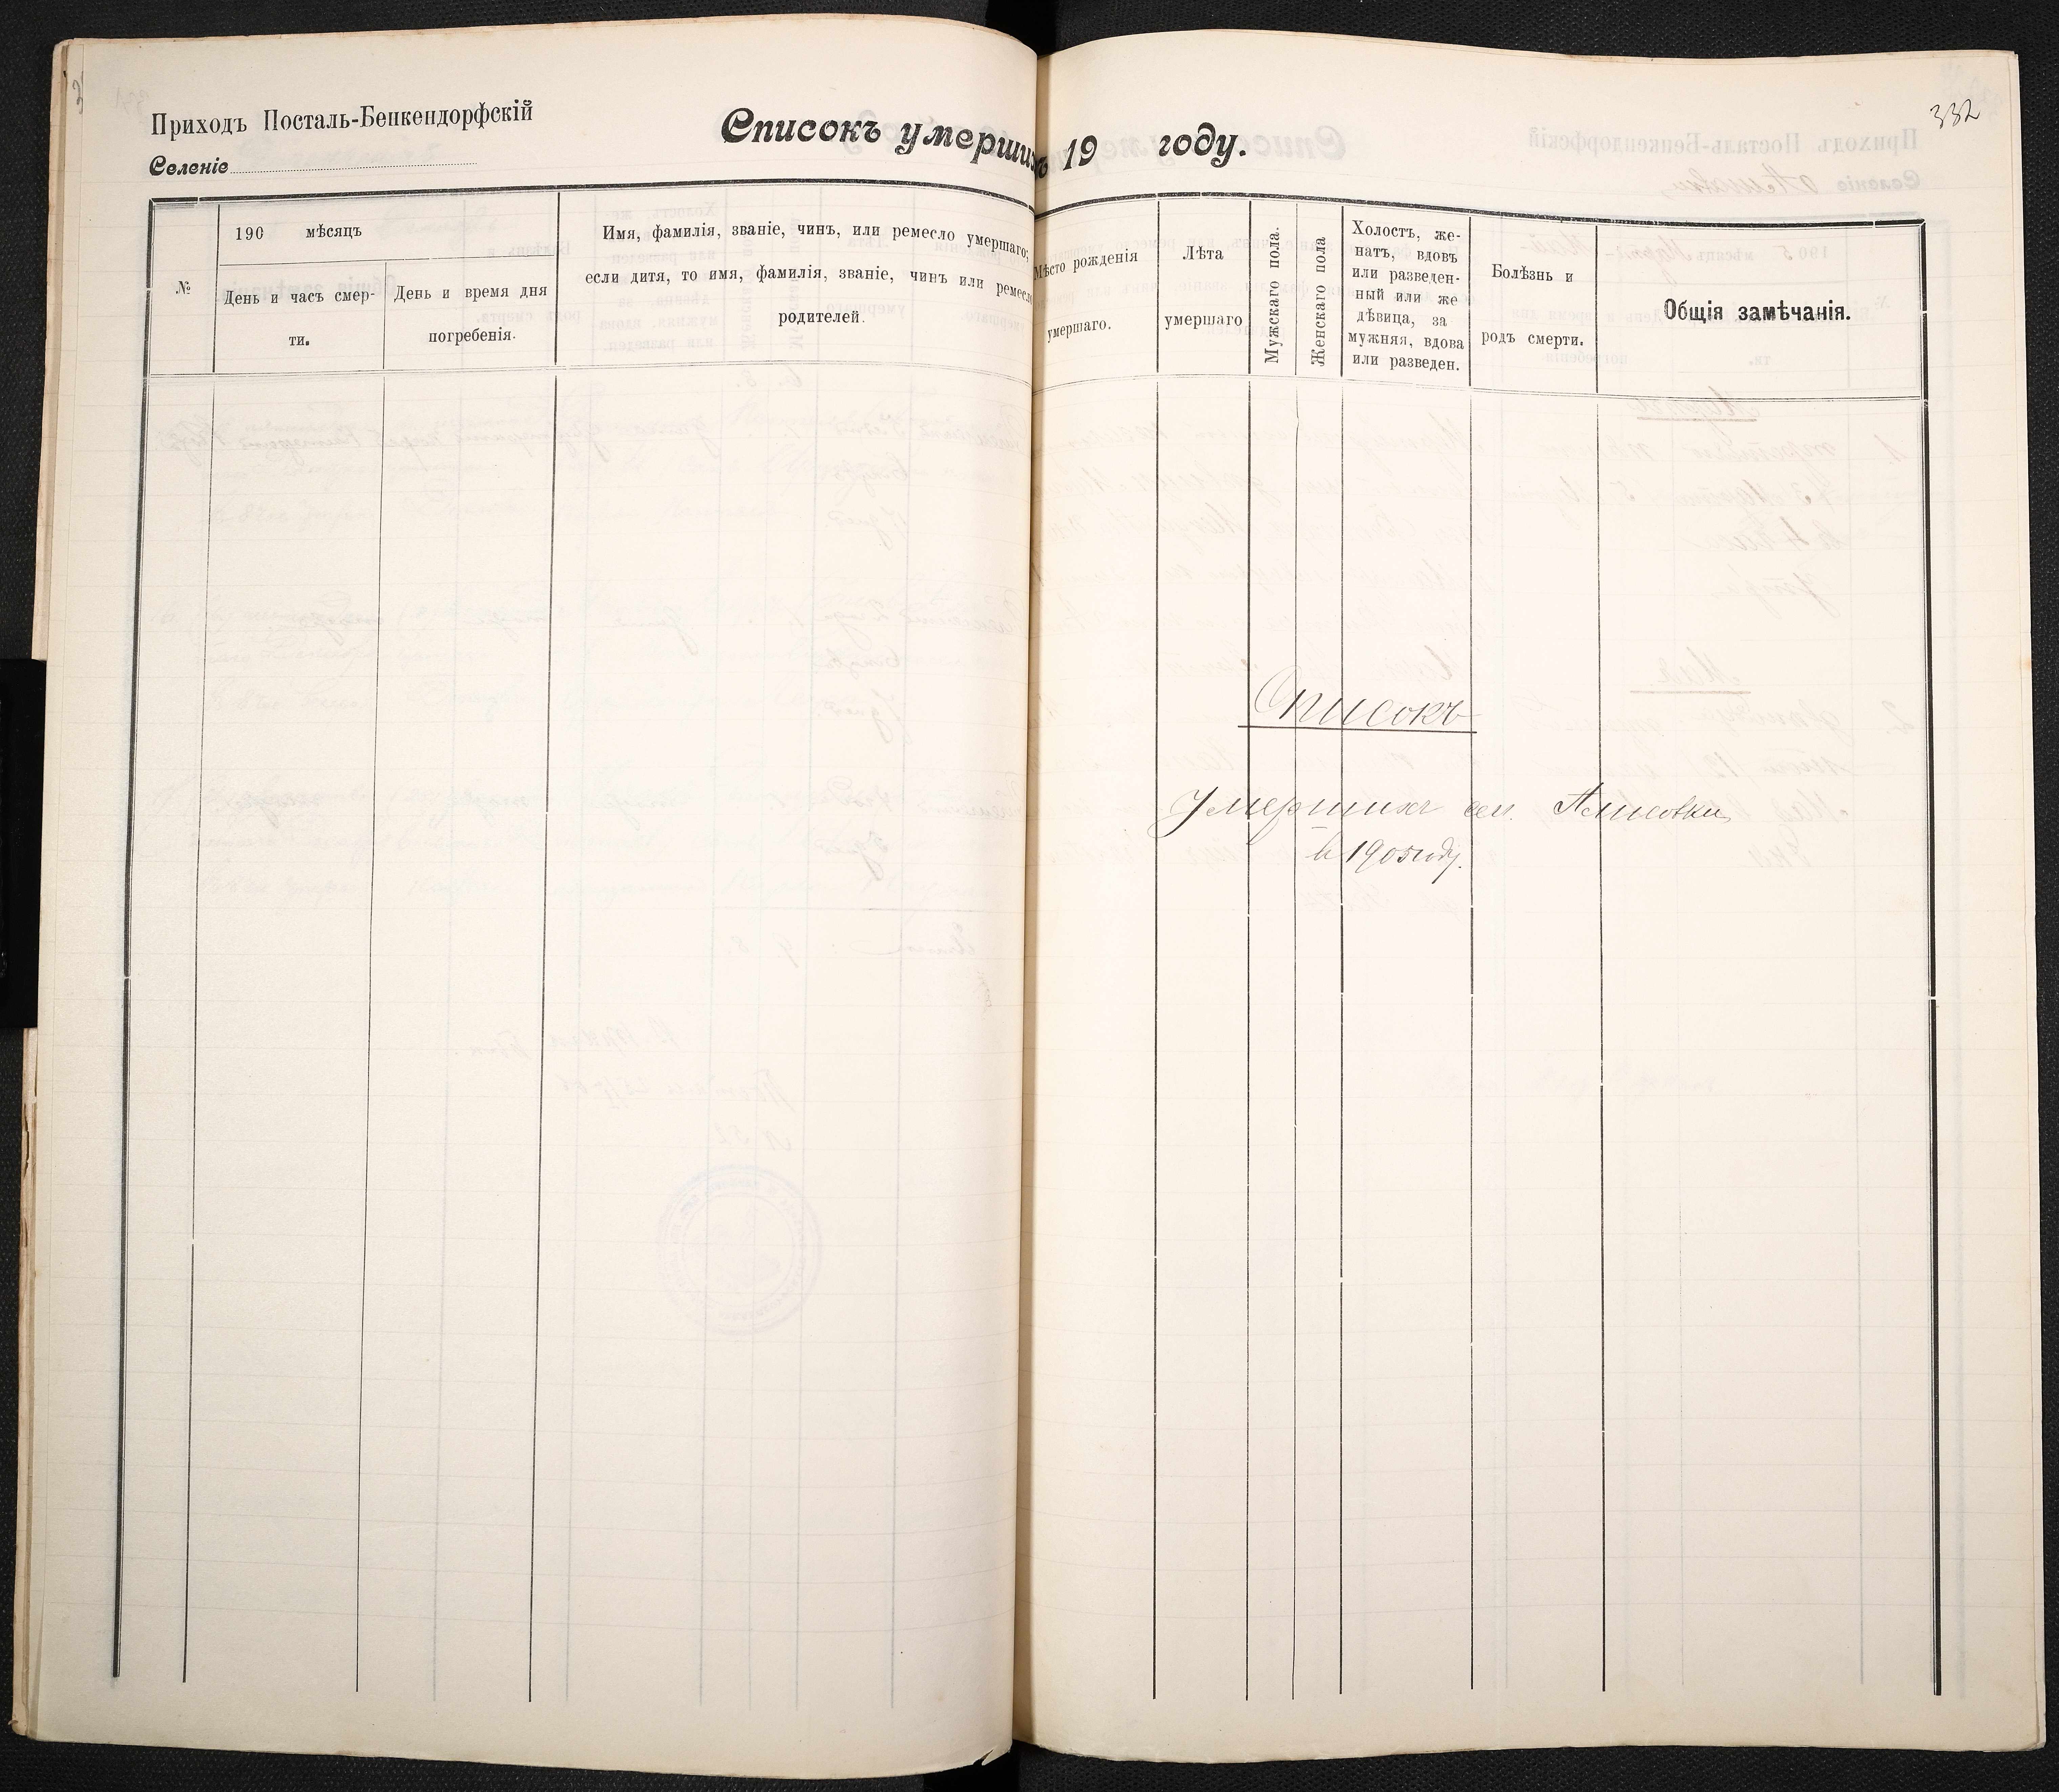 332
Приходъ Посталь-Бенкендорфскій
Селеніе
Списокъ умершихъ 19 году.
№
190 мѣсяцъ
День и часъ смер-
ти.
День и время дня
погребенія.
Имя, фамилія, званіе, чинъ, или ремесло умершаго;
если дитя, то имя, фамилія, званіе, чинъ или ремесло
родителей.
Мѣсто рожденія
умершаго.
Лѣта
умершаго
Мужскаго пола.
Женскаго пола
Холостъ, же-
натъ, вдовъ
или разведен-
ный или же
дѣвица, за
мужняя, вдова
или разведен.
Болѣзнь и
родъ смерти.
Общія замѣчанія.
Списокъ
Умершихъ сел.
в 1905 году.